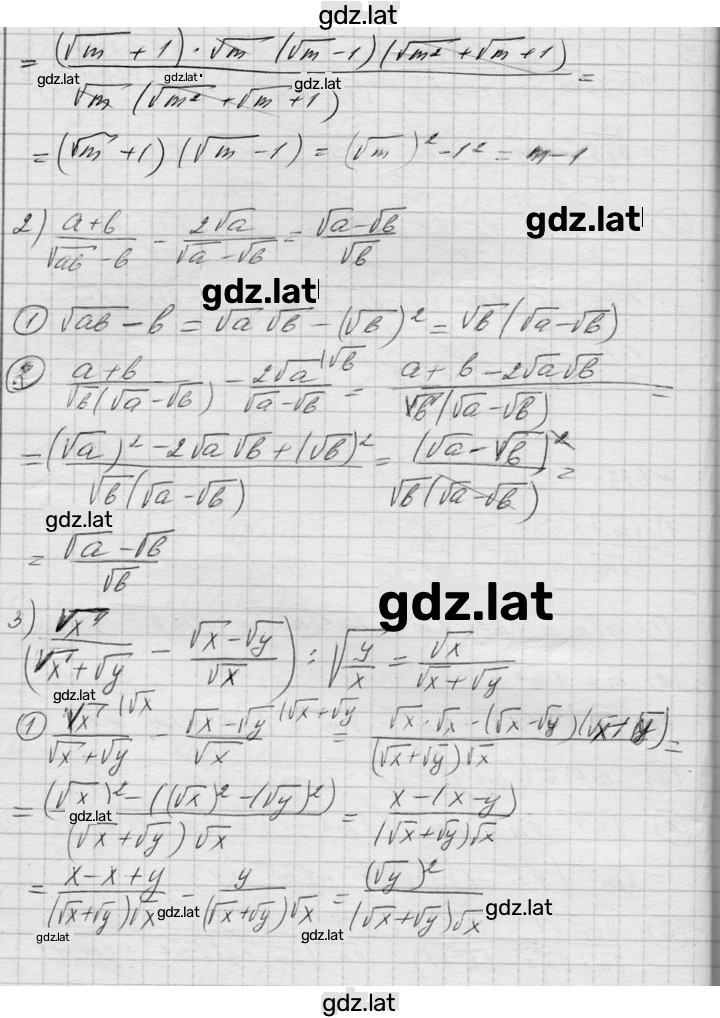 gdz.lat
= (√m + 1) · √m (√m - 1)(√m² + √m + 1) / √m (√m² + √m + 1) =
gdz.lat gdz.lat gdz.lat
= (√m + 1)(√m - 1) = (√m)² - 1² = m - 1
2) a+b / √ab - b - 2√a / √a - √b = √a - √b / √b
gdz.lat
gdz.lat
① √ab - b = √a √b - (√b)² = √b(√a - √b)
② a+b / √b(√a - √b) - 2√a |√b / √a - √b = a + b - 2√a√b / √b(√a - √b) =
= (√a)² - 2√a√b + (√b)² / √b(√a - √b) = (√a - √b)² / √b(√a - √b) =
gdz.lat
= √a - √b / √b
gdz.lat
3) (√x / √x + √y - √x - √y / √x) : √y/x = √x / √x + √y
gdz.lat
① √x |√x / √x + √y - √x - √y |√x + √y / √x = √x · √x - (√x - √y)(√x + √y) / (√x + √y)√x =
= (√x)² - ((√x)² - (√y)²) / (√x + √y)√x = x - (x - y) / (√x + √y)√x
gdz.lat
= x - x + y / (√x + √y)√x = y / (√x + √y)√x = (√y)² / (√x + √y)√x
gdz.lat gdz.lat gdz.lat gdz.lat
gdz.lat